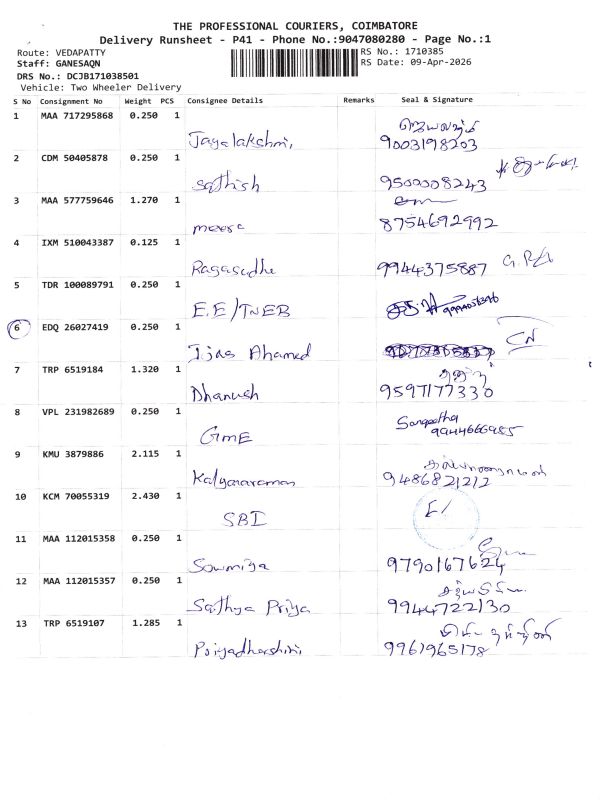 THE PROFESSIONAL COURIERS, COIMBATORE
Delivery Runsheet - P41 - Phone No.:9047080280 - Page No.:1
Route: VEDAPATTY
RS No.: 1710385
Staff: GANESAQN
RS Date: 09-Apr-2026
DRS No.: DCJB171038501
Vehicle: Two Wheeler Delivery
S No Consignment No Weight PCS Consignee Details Remarks Seal & Signature
1 MAA 717295868 0.250 1
Jayalakshmi, 9003198203
2 CDM 50405878 0.250 1
sathish 9500008243
3 MAA 577759646 1.270 1
meera 8754692992
4 IXM 510043387 0.125 1
Ragasudha 9944375887
5 TDR 100089791 0.250 1
E.E/TNEB
6 EDQ 26027419 0.250 1
Ijas Ahamed
7 TRP 6519184 1.320 1
Dhanush 9597177330
8 VPL 231982689 0.250 1
Sangeetha
GME 9944666985
9 KMU 3879886 2.115 1
Kalyanaraman 9486821212
10 KCM 70055319 2.430 1
SBI
11 MAA 112015358 0.250 1
Sowmiya 9790167624
12 MAA 112015357 0.250 1
Sathya Priya 9944722130
13 TRP 6519107 1.285 1
Poiyadharshini 9961965178